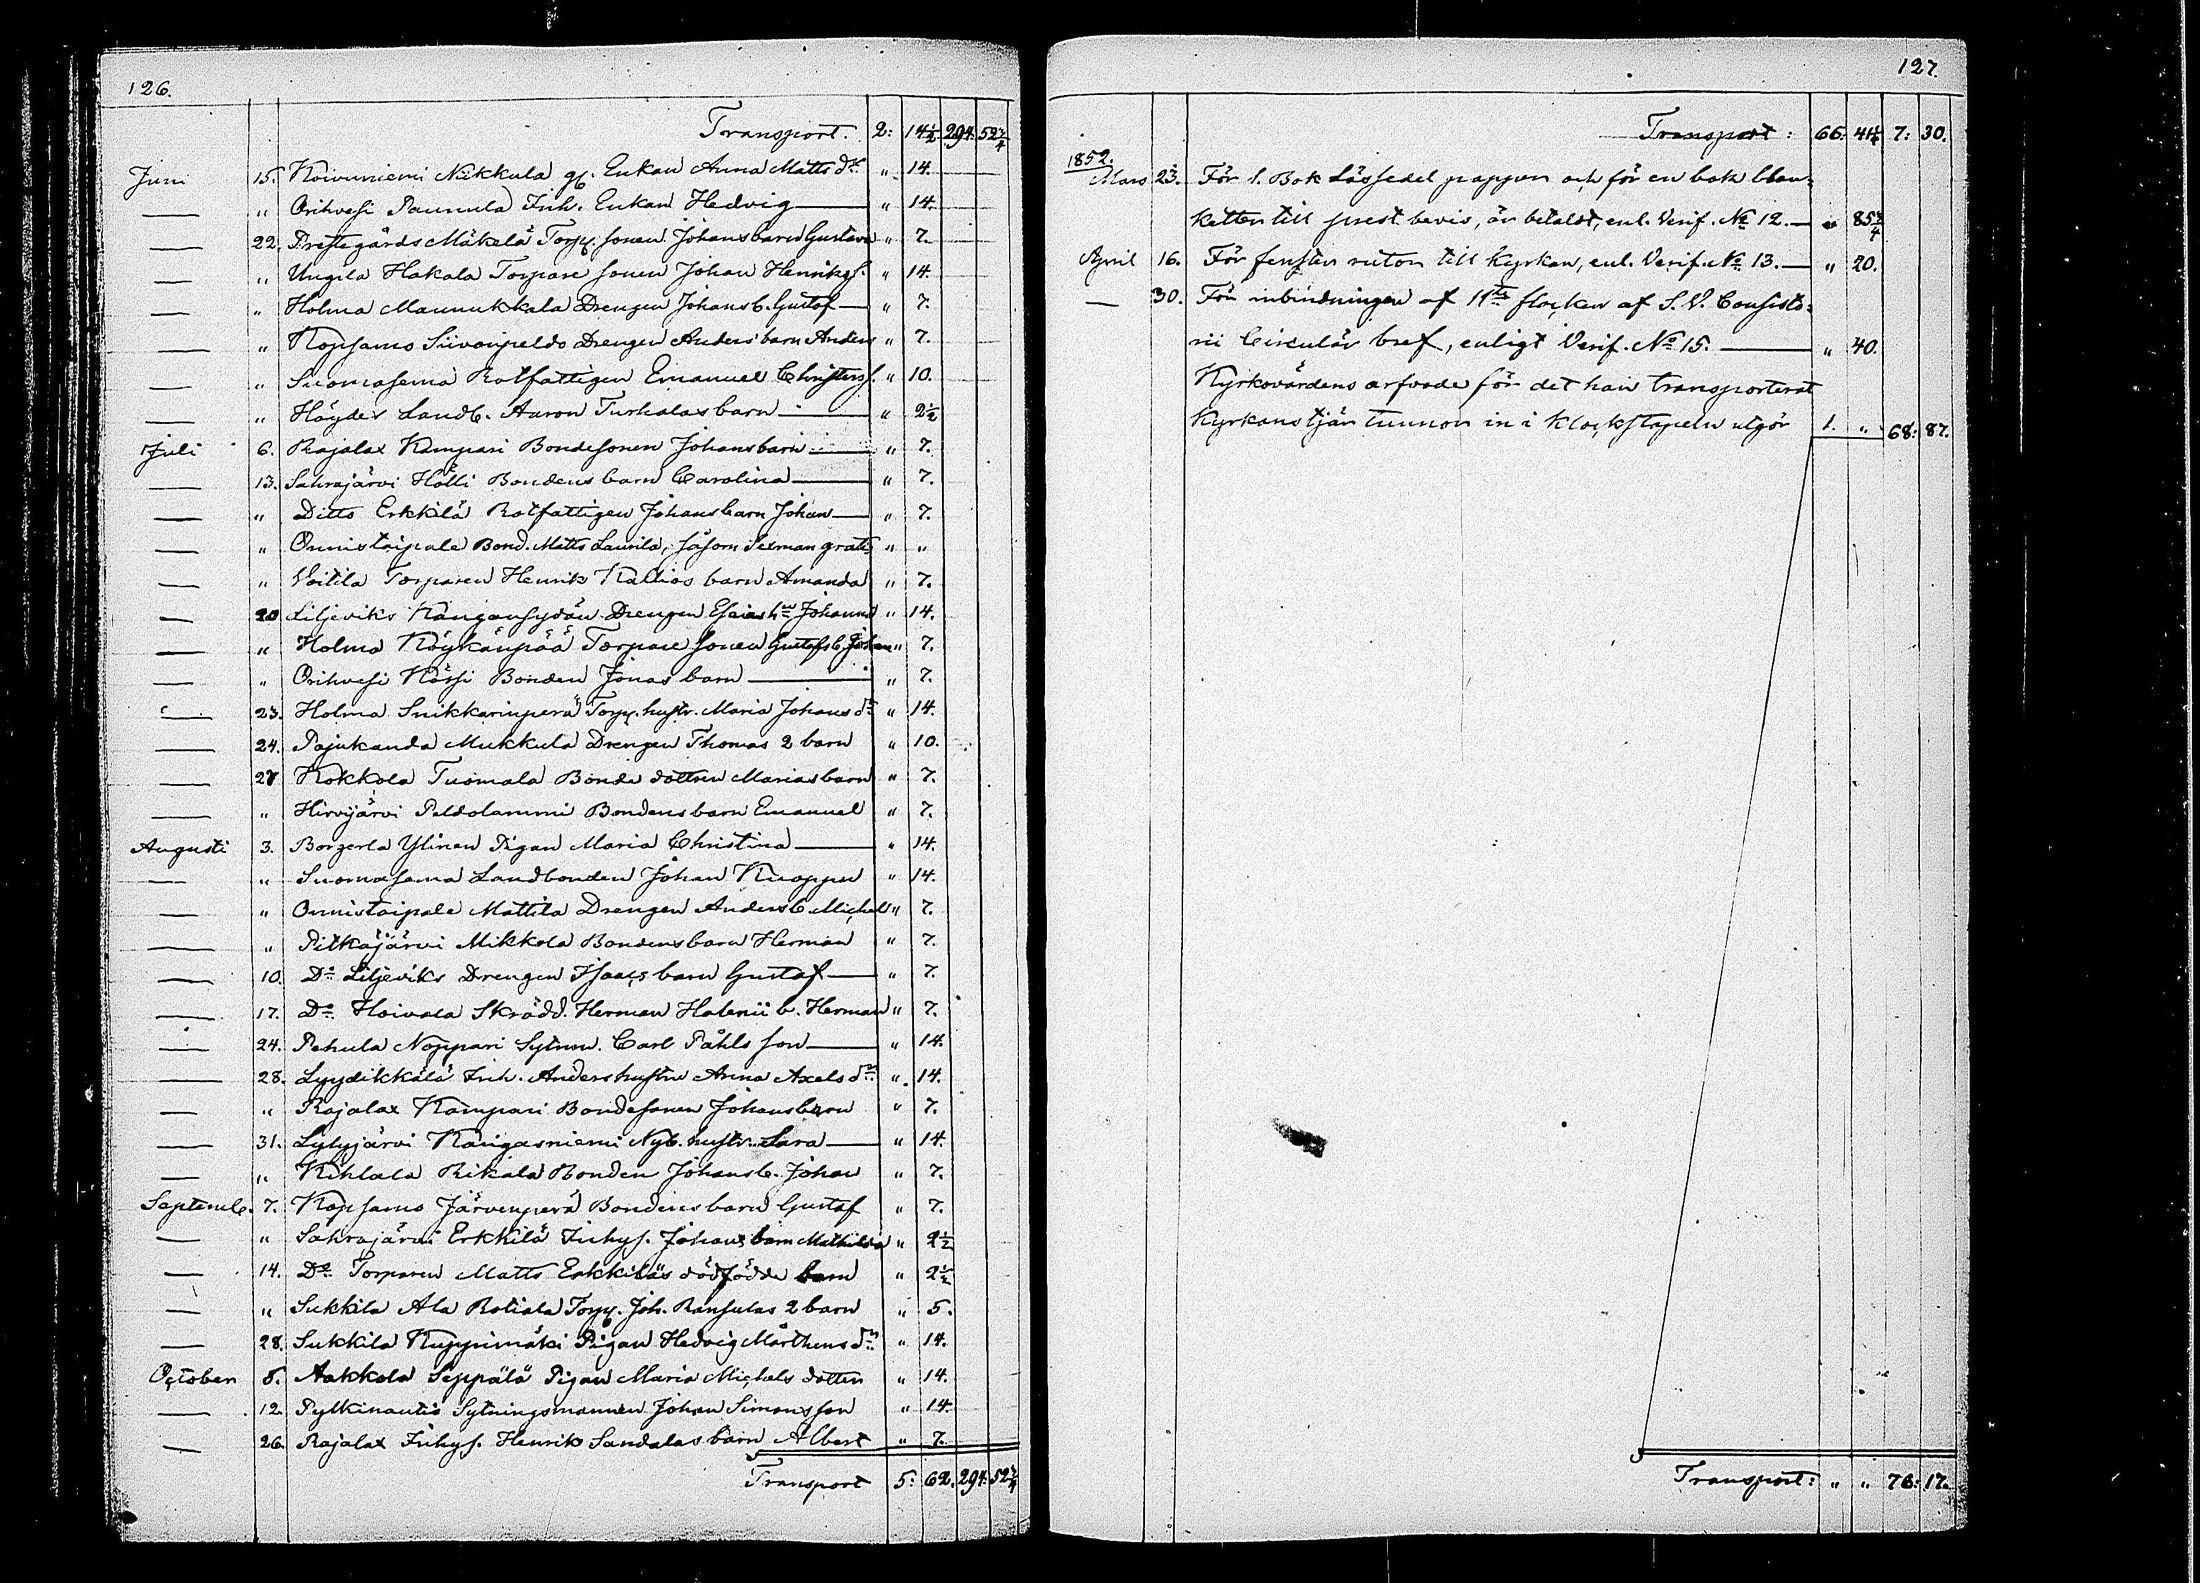 126.
Transport. 2: 14½ 294: 52¾
Juni 15. Koivuniemi Nikkula gf. Enkan Anna Matts dr. " 14.
— " Orihvesi Paunula Inh. Enkan Hedvig — " 14.
— 22. Prestegårds Mäkelä Torp. sonen Johans barn Gustava " 7.
— " Ungila Hakala Torpare sonen Johan Henriks s. " 14.
— " Holma Maunukkala Drengen Johans b. Gustaf — " 7.
— " Kopsamo Siivonpeldo Drengen Anders barn Anders " 7.
— " Suomasema Rotfattigen Emanuel Christers s. " 10.
— " Höyder Landb. Aaron Turkalas barn — " 2½
Juli 6. Rajalax Kampari Bondesonen Johans barn — " 7.
— 13. Sahrajärvi Hölli Bondens barn Carolina — " 7.
— " Ditto Erkkilä Rotfattigen Johans barn Johan — " 7.
— " Onnistaipale Bond. Matts Laurila, såsom Sexman gratis " "
— " Voitila Torparen Henrik Kallios barn Amanda " 7.
— 20 Liljeviks Kangansydän Drengen Esaias h:u Johanna " 14.
— " Holma Köykänpää Torpare sonen Gustafs b. Johan " 7.
— " Orihvesi Hörsi Bonden Jonas barn — " 7.
— 23. Holma Snikkarinperä Torp. hustr. Maria Johans dr " 14.
— 24. Pajukanda Mukkula Drengen Thomas 2 barn " 10.
— 27 Kokkola Tuomala Bonde dottren Marias barn " 7.
— " Hirvijärvi Peldolammi Bondens barn Emanuel " 7.
Augusti 3. Borgerla Ylinen Pigan Maria Christina — " 14.
— " Suomasema Landbonden Johan Knoppu " 14.
— " Onnistaipale Mattila Drengen Anders b. Michel " 7.
— " Pitkäjärvi Mikkola Bondens barn Herman " 7.
— 10. Do Liljeviks Drengen Isaacs barn Gustaf — " 7.
— 17. Do Hoivala Skrädd. Herman Halenii b. Herman " 7.
— 24. Pehula Noppari Sytnm. Carl Påhls son — " 14.
— 28. Lyydikkälä Inh. Anders hustru Anna Axels dr " 14.
— " Rajalax Kampari Bondesonen Johans barn " 7.
— 31. Lyhyjärvi Kangasniemi Nyb. hustr. Sara — " 14.
— " Kihlala Rikala Bonden Johans b. Johan " 7.
Septemb. 7. Kopsamo Järvenperä Bondens barn Gustaf " 7.
— " Sahrajärvi Erkkilä Inhys. Johans barn Mathilda " 2½
— 14. Do Torparen Matts Erkkiläs dödfödde barn " 2½
— " Sukkila Ala Rotiala Torp. Joh. Ransulas 2 barn " 5.
— 28. Sukkila Kuppimäki Pigan Hedvig Mårthens dr " 14.
October 5. Aakkola Seppälä Pigan Maria Michels dotter " 14.
— 12. Pytkinautio Sytningsmannen Johan Simonsson " 14.
— 26. Rajalax Inhys. Henrik Sandalas barn Albert " 7.
Transport 5: 62. 294: 52¾
127.
Transport: 66: 41¼ 7: 30.
1852.
Mars 23. För 1. Bok Låssedel papper och för en bok blan-
ketter till prest bevis, är betaldt, enl. Verif. No 12. — " 85¾
April 16. För fenster rutor till Kyrkan, enl. Verif. No 13. — " 20.
— 30. För inbindningen af 11 flocker af S. V. Consisto-
rii Circulär bref, enligt Verif. No 15. — " 40.
Kyrkovärdens arfvode för det han transporterat
Kyrkans tjär tunnor in i Klockstapeln utgör 1. " 68: 87.
Transport: " " 76: 17.